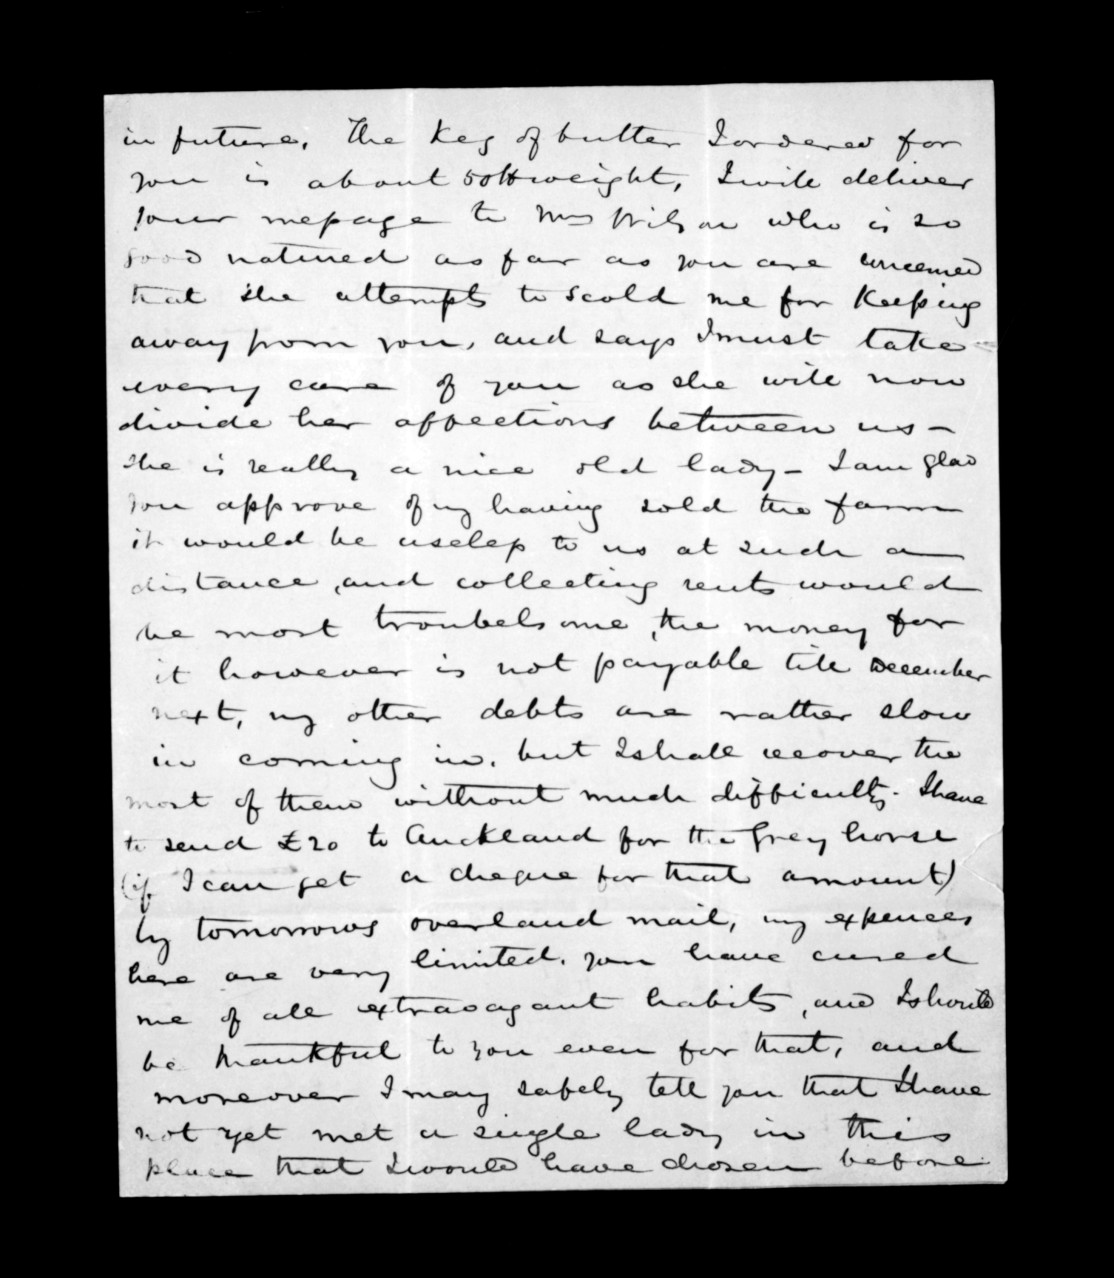 in future. The Keg of butter I ordered for
you is about 50 lb weight, I will deliver
your message to Mrs Wilson who is so
good natured as far as you are concerned
that she attempts to scold me for Keeping
away from you, and says I must take
every care of you as she will now
divide her affections between us -
she is really a nice old lady - I am glad
you approve of my having sold the farm
it would be useless to us at such a
distance, and collecting rents would
be most troubelsome, the money for
it however is not payable till December
next, my other debts are rather slow
in coming in, but I shall recover the
most of them without much difficulty. I have
to send £20 to Auckland for the Grey horse
(if I can get a cheque for that amount)
by tomorrows overland mail, my expences
here are very limited. you have cured
me of all extravagant habits, and I should
be thankful to you even for that, and
moreover I may safely tell you that I have
not yet met a single lady in this
place that I would have chosen before